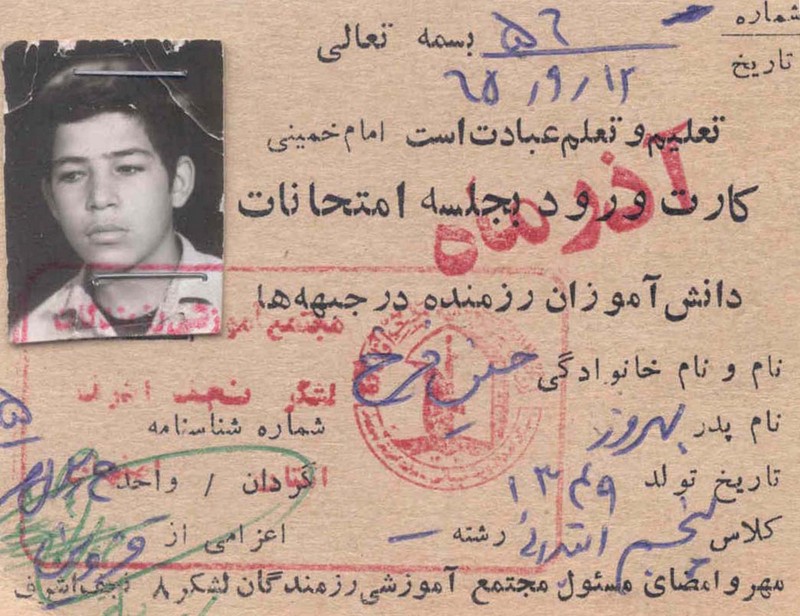 شماره ۵۶
بسمه تعالی
تاریخ ۶۵/۹/۱۲
تعلیم و تعلم عبادت است امام خمینی
کارت ورود بجلسه امتحانات
آذر ماه
دانش آموزان رزمنده در جبهه‌ها
مجتمع آموزشی رزمندگان
نام و نام خانوادگی فرخ
لشکر نجف اشرف
نام پدر بهروز شماره شناسنامه
تاریخ تولد ۱۳۴۹ گردان / واحد
کلاس پنجم ابتدائی رشته — اعزامی از
مهر و امضای مسئول مجتمع آموزشی رزمندگان لشکر ۸ نجف اشرف